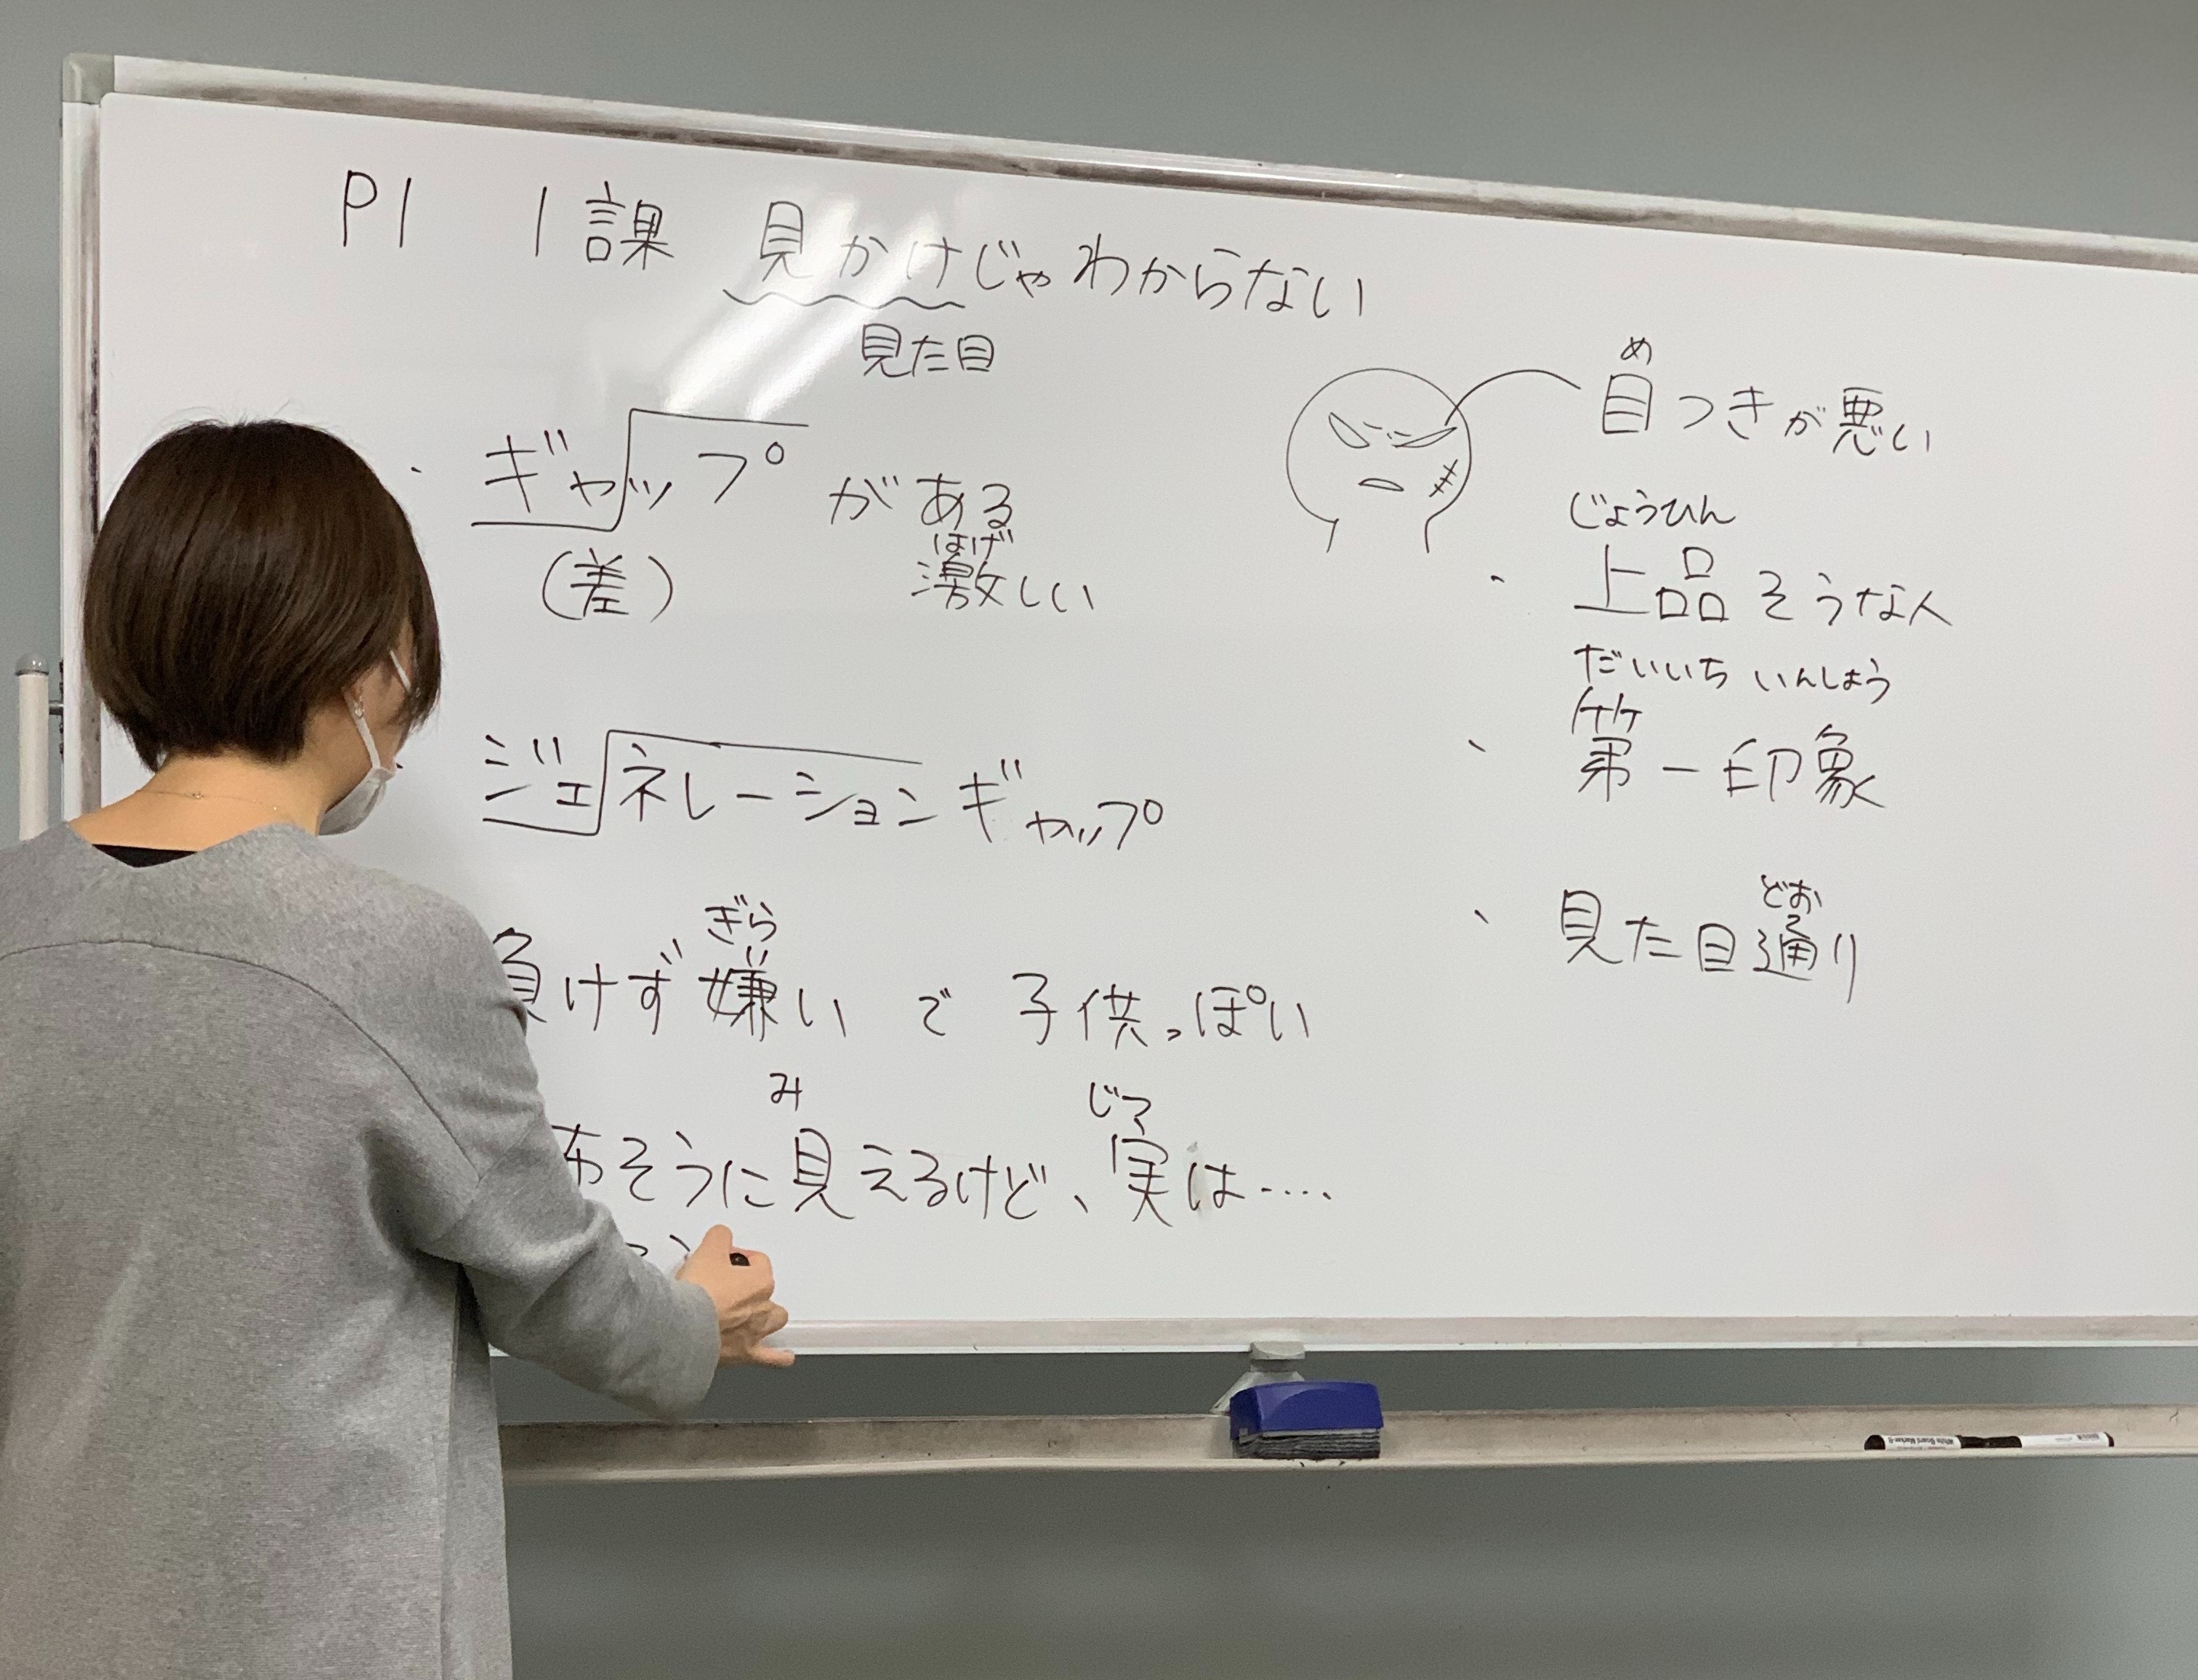 P1 1課 見かけじゃわからない
見た目
・ギャップがある
(差)
はげ
激しい
ジェネレーションギャップ
ぎら
負けず嫌いで子供っぽい
み じつ
布そうに見えるけど、実は....
め
目つきが悪い
じょうひん
・上品そうな人
だいいち いんしょう
、第一印象
どお
、見た目通り
White Board Marker